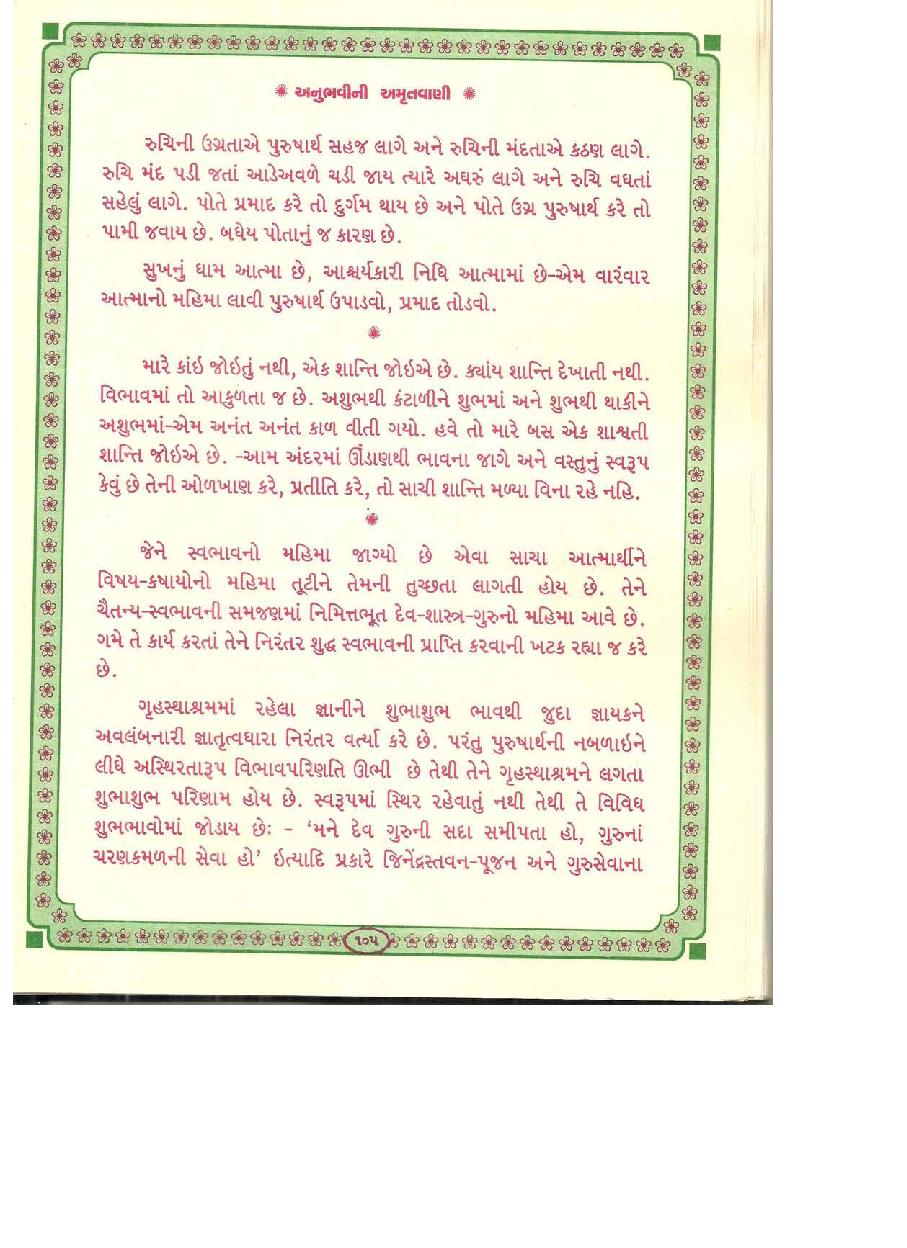 અનુભવીની અમૃતવાણી
રુચિની ઉગ્રતાએ પુરુષાર્થ સહજ લાગે અને રુચિની મંદતાએ કઠણ લાગે.
રુચિ મંદ પડી જતાં આડેઅવળે ચડી જાય ત્યારે અઘરું લાગે અને રુચિ વધતાં
સહેલું લાગે. પોતે પ્રમાદ કરે તો દુર્ગમ થાય છે અને પોતે ઉગ્ર પુરુષાર્થ કરે તો
પામી જવાય છે. બધેય પોતાનું જ કારણ છે.
સુખનું ધામ આત્મા છે, આશ્ચર્યકારી નિધિ આત્મામાં છે-એમ વારંવાર
આત્માનો મહિમા લાવી પુરુષાર્થ ઉપાડવો, પ્રમાદ તોડવો.
મારે કાંઇ જોઇતું નથી, એક શાન્તિ જોઇએ છે. ક્યાંય શાન્તિ દેખાતી નથી.
વિભાવમાં તો આકુળતા જ છે. અશુભથી કંટાળીને શુભમાં અને શુભથી થાકીને
અશુભમાં-એમ અનંત અનંત કાળ વીતી ગયો. હવે તો મારે બસ એક શાશ્વતી
શાન્તિ જોઇએ છે. -આમ અંદરમાં ઊંડાણથી ભાવના જાગે અને વસ્તુનું સ્વરૂપ
કેવું છે તેની ઓળખાણ કરે, પ્રતીતિ કરે, તો સાચી શાન્તિ મળ્યા વિના રહે નહિ.
જેને સ્વભાવનો મહિમા જાગ્યો છે એવા સાચા આત્માર્થીને
વિષય-કષાયોનો મહિમા તૂટીને તેમની તુચ્છતા લાગતી હોય છે. તેને
ચૈતન્ય-સ્વભાવની સમજણમાં નિમિત્તભૂત દેવ-શાસ્ત્ર-ગુરુનો મહિમા આવે છે.
ગમે તે કાર્ય કરતાં તેને નિરંતર શુદ્ધ સ્વભાવની પ્રાપ્તિ કરવાની ખટક રહ્યા જ કરે
છે.
ગૃહસ્થાશ્રમમાં રહેલા જ્ઞાનીને શુભાશુભ ભાવથી જુદા જ્ઞાયકને
અવલંબનારી જ્ઞાતૃત્વધારા નિરંતર વર્ત્યા કરે છે. પરંતુ પુરુષાર્થની નબળાઇને
લીધે અસ્થિરતારૂપ વિભાવપરિણતિ ઊભી છે તેથી તેને ગૃહસ્થાશ્રમને લગતા
શુભાશુભ પરિણામ હોય છે. સ્વરૂપમાં સ્થિર રહેવાતું નથી તેથી તે વિવિધ
શુભભાવોમાં જોડાય છેઃ - ‘મને દેવ ગુરુની સદા સમીપતા હો, ગુરુનાં
ચરણકમળની સેવા હો’ ઇત્યાદિ પ્રકારે જિનેંદ્રસ્તવન-પૂજન અને ગુરુસેવાના
૧૦૫